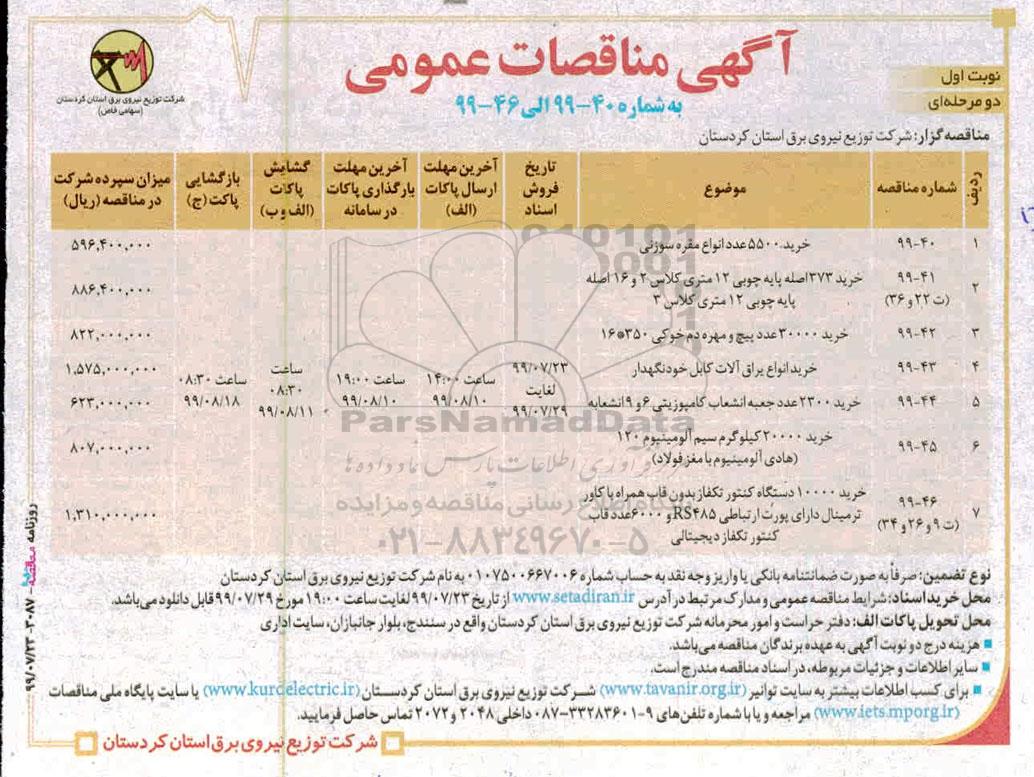 آگهی مناقصات عمومی
به شماره ۴۰-۹۹ الی ۴۶-۹۹
نوبت اول
دو مرحله‌ای
شرکت توزیع نیروی برق استان کردستان
(سهامی خاص)
مناقصه گزار: شرکت توزیع نیروی برق استان کردستان
ردیف | شماره مناقصه | موضوع | تاریخ فروش اسناد | آخرین مهلت ارسال پاکات (الف) | آخرین مهلت بارگذاری پاکات در سامانه | گشایش پاکات (الف و ب) | بازگشایی پاکت (ج) | میزان سپرده شرکت در مناقصه (ریال)
۱ | ۹۹-۴۰ | خرید ۵۵۰۰ عدد انواع مقره سوزنی | ۵۹۶,۴۰۰,۰۰۰
۲ | ۹۹-۴۱ (ت ۲۲ و ۳۶) | خرید ۳۷۳ اصله پایه چوبی ۱۲ متری کلاس ۲ و ۱۶ اصله پایه چوبی ۱۲ متری کلاس ۳ | ۸۸۶,۴۰۰,۰۰۰
۳ | ۹۹-۴۲ | خرید ۳۰۰۰۰ عدد پیچ و مهره دم خوکی ۳۵۰*۱۶ | ۸۲۲,۰۰۰,۰۰۰
۴ | ۹۹-۴۳ | خرید انواع یراق آلات کابل خودنگهدار | ۱,۵۷۵,۰۰۰,۰۰۰
۵ | ۹۹-۴۴ | خرید ۲۳۰۰ عدد جعبه انشعاب کامپوزیتی ۶ و ۹ انشعابه | ۶۲۳,۰۰۰,۰۰۰
۶ | ۹۹-۴۵ | خرید ۲۰۰۰۰ کیلوگرم سیم آلومینیوم ۱۲۰ (هادی آلومینیوم با مغز فولاد) | ۸۰۷,۰۰۰,۰۰۰
۷ | ۹۹-۴۶ (ت ۹ و ۲۶ و ۳۴) | خرید ۱۰۰۰۰ دستگاه کنتور تکفاز بدون قاب همراه با کاور ترمینال دارای پورت ارتباطی RS۴۸۵ و ۶۰۰۰ عدد قاب کنتور تکفاز دیجیتالی | ۱,۳۱۰,۰۰۰,۰۰۰
۹۹/۰۷/۲۳ لغایت ۹۹/۰۷/۲۹ | ساعت ۱۴:۰۰ ۹۹/۰۸/۱۰ | ساعت ۱۹:۰۰ ۹۹/۰۸/۱۰ | ساعت ۰۸:۳۰ ۹۹/۰۸/۱۱ | ساعت ۰۸:۳۰ ۹۹/۰۸/۱۸
ParsNamadData
فرآوری اطلاعات پارس نماد داده‌ها
رسانی مناقصه و مزایده
۰۲۱-۸۸۳۴۹۶۷۰-۵
نوع تضمین: صرفاً به صورت ضمانتنامه بانکی یا واریز وجه نقد به حساب شماره ۰۱۰۷۵۰۰۶۶۷۰۰۶ به نام شرکت توزیع نیروی برق استان کردستان
محل خرید اسناد: شرایط مناقصه عمومی و مدارک مرتبط در آدرس www.setadiran.ir از تاریخ ۹۹/۰۷/۲۳ لغایت ساعت ۱۹:۰۰ مورخ ۹۹/۰۷/۲۹ قابل دانلود می‌باشد.
محل تحویل پاکات الف: دفتر حراست و امور محرمانه شرکت توزیع نیروی برق استان کردستان واقع در سنندج، بلوار جانبازان، سایت اداری
■ هزینه درج دو نوبت آگهی به عهده برندگان مناقصه می‌باشد.
■ سایر اطلاعات و جزئیات مربوطه، در اسناد مناقصه مندرج است.
■ برای کسب اطلاعات بیشتر به سایت توانیر (www.tavanir.org.ir) شرکت توزیع نیروی برق استان کردستان (www.kurdelectric.ir) یا سایت پایگاه ملی مناقصات
(www.iets.mporg.ir) مراجعه و یا با شماره تلفن‌های ۹-۳۳۲۸۳۶۰۱-۰۸۷ داخلی ۲۰۴۸ و ۲۰۷۲ تماس حاصل فرمایید.
شرکت توزیع نیروی برق استان کردستان
روزنامه مناقصه - ۳۰۸۷ - ۹۹/۰۷/۲۳